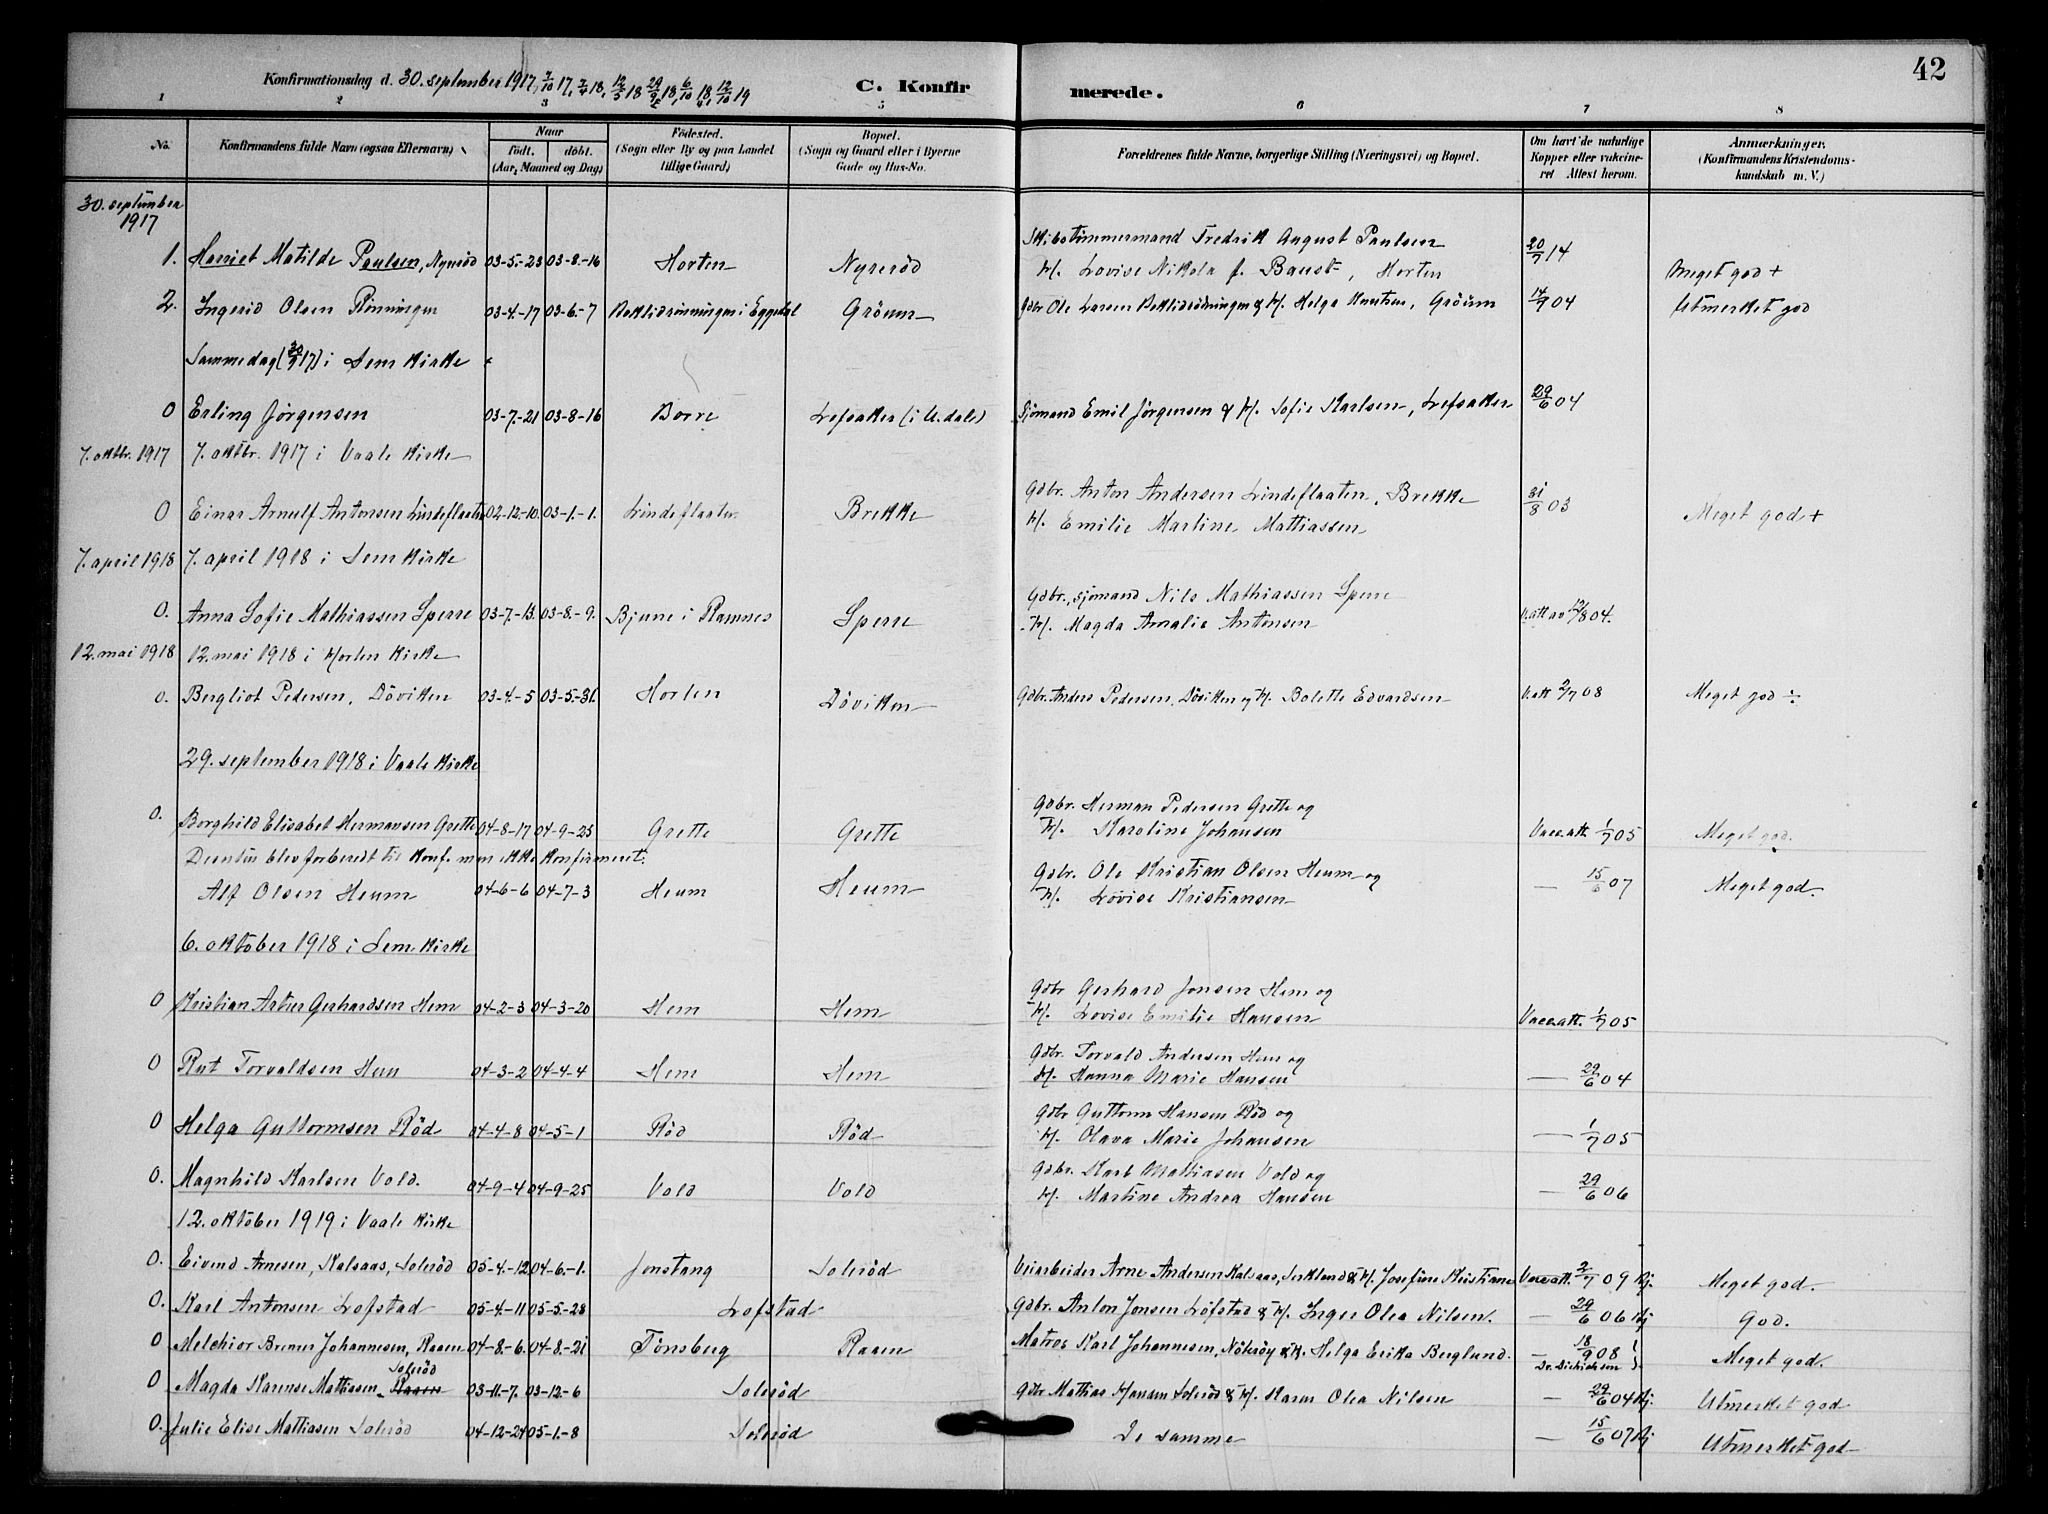 42
Konfirmationsdag d. 30. september 1917, 7/10 17, 7/4 18, 12/5 18 29/9 18, 6/10 18, 12/10 19 C. Konfirmerede.
1 2 3 4 5 6 7 8
No. Konfirmandens fulde Navn (ogsaa Efternavn) Naar født. døbt. (Aar, Maaned og Dag) Fødested. (Sogn eller By og paa Landet tillige Gaard) Bopæl. (Sogn og Gaard eller i Byerne Gade og Hus-No. Forældrenes fulde Navne, borgerlige Stilling (Næringsvei) og Bopæl. Om havt de naturlige Kopper eller vakcineret Attest herom. Anmærkninger. (Konfirmandens Kristendomskundskab m. V.)
30. september 1917
1. Harriet Matilde Paulsen, Nyrerød 03-5.-23 03-8.-16 Horten Nyrerød Skibstømmermand Fredrik August Paulsen H. Lovise Nikola f. Baust, Horten 20/7 14 Meget god +
2. Ingerid Olsen Rønningen 03-4.-17 03-6.-7 i Eggedal Grøum Gdbr. Ole Larsen & H. Helga Knutsen, Grøum 14/9 04 Utmerket god
Samme dag (30/9 17) i Sem Kirke
0 Erling Jørgensen 03-7.-21 03-8-16 Borre Lefsaker (i U.dal) Sjømand Emil Jørgensen & H. Sofie Karlsen, Lefsaker 29/6 04
7. oktbr. 1917 7. oktbr. 1917 i Vaale Kirke
0 Einar Arnulf Antonsen Lindeflaaten 02-12.-10. 03-1.-1. Lindeflaaten Brekke Gdbr. Anton Andersen Lindeflaaten, Brekke H. Emilie Martine Mattiassen 31/8 03 Meget god +
7. april 1918 7. april 1918 i Sem Kirke
0. Anna Sofie Mathiassen Sperre 03-7.-13. 03-8.-9. Bjune i Ramnes Sperre Gdbr., sjømand Nils Mathiassen Sperre H. Magda Amalie Antonsen V. att av 12/8 04.
12. mai 1918 12. mai 1918 i Horten Kirke
0. Bergliot Pedersen, Døviken 03-4.-5 03-5.-31. Horten Døviken Gdbr. Anders Pedersen, Døviken og H. Bolette Edvardsen V. att 2/7 08 Meget god ÷
29. september 1918 i Vaale Kirke
0. Borghild Elisabet Hermansen Grette 04-8-17 04-9-25 Grette Grette Gdbr. Herman Pedersen Grette og H. Karoline Johansen Vacc. att. 1/7 05 Meget god.
blev forberedt til Konf. men ikke Konfirmeret.
Alf Olsen Heum 04-6-6 04-7-3 Heum Heum Gdbr. Ole Kristian Olsen Heum og H. Lovise Kristiansen — 15/6 07 Meget god.
6. oktober 1918 i Sem Kirke
0 Kristian Artur Gerhardsen Hem 04-2-3 04-3-20 Hem Hem Gdbr Gerhard Jonsen Hem og H. Lovise Emilie Hansen Vacc. att. 1/7 05
0 Rut Torvaldsen Hem 04-3-2 04-4-4 Hem Hem Gdbr. Torvald Andersen Hem og H. Hanna Marie Hansen — 29/6 04
0 Helga Guttormsen Rød 04-4-8 04-5-1 Rød Rød Gdbr Guttorm Hansen Rød og H. Olava Marie Johansen — 1/7 05
0. Magnhild Karlsen Vold. 04-9-4 04-9-25 Vold Vold Gdbr. Karl Mathiasen Vold og H. Martine Andrea Hansen — 29/6 06
12. oktober 1919 i Vaale Kirke
0. Eivind Arnesen, Kalsaas, Solerød 05-4.-12 04-6.-1. Jonstang Solerød Veiarbeider Arne Andersen Kalsaas, & H. Josefine Kristiane Vacc. att. 2/7 09 Kj. Meget god.
0. Karl Antonsen Lofstad 05-4.-11 05-5-28 Lofstad Gdbr. Anton Jonsen Lofstad & H. Inger Olea Nilsen. — 29/6 06 Kj God.
0 Melchior Johannesen, Raaen 04-8.-6. 04-8.-21 Tønsberg Raaen Matros Karl Johannesen, Nøterøy & H. Helga Erika Berglund. — 18/9 08 Meget god.
0 Magda Karense Mathissen Raaen Solerød 03-11.-7. 03-12-6 Solerød Gdbr Mathias Hansen Solerød & H. Karen Olea Nilsen — 29/6 04 Kj. Utmerket god
0. Julie Elise Mathiasen Solerød 04-12-24 05-1.-8 Solerød De samme — 15/6 07 Kj Utmerket god